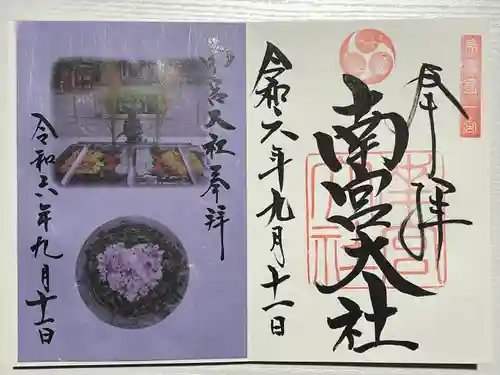 美濃國一宮
奉拝
南宮大社
令和六年九月十一日
南宮大社奉拝
令和六年九月十一日